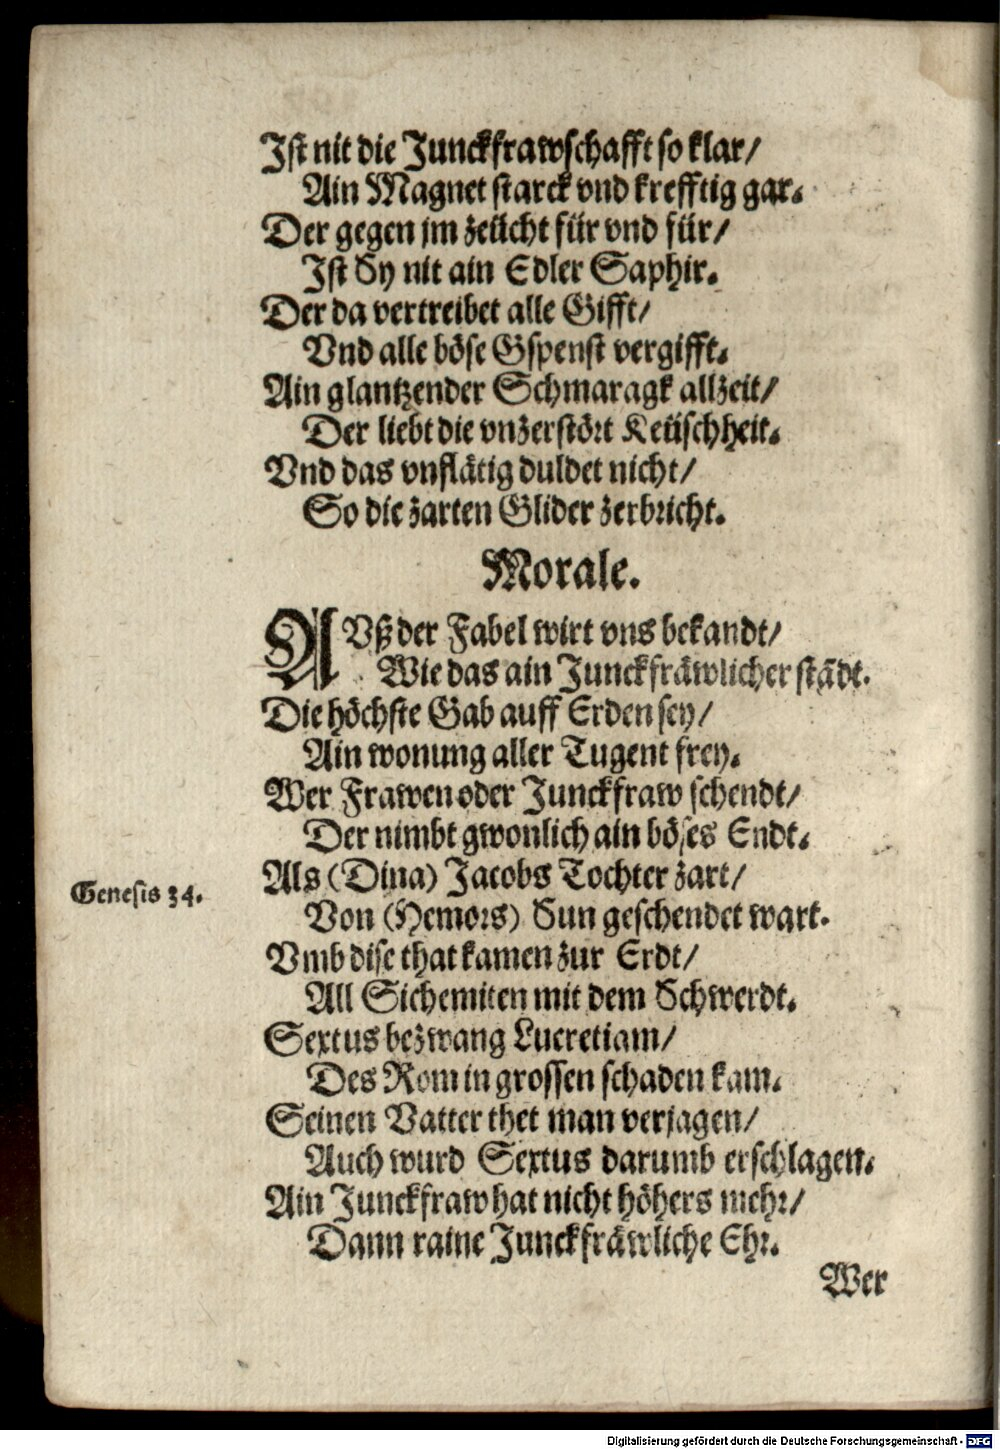 Ist nit die Junckfrawschafft so klar/
Ain Magnet starck vnd krefftig gar.
Der gegen jm zeücht für vnd für/
Ist Sy nit ain Edler Saphir.
Der da vertreibet alle Gifft/
Vnd alle böse Gspenst vergifft.
Ain glantzender Schmaragk allzeit/
Der liebt die vnzerstört Keüschheit.
Vnd das vnflätig duldet nicht/
So die zarten Glider zerbricht.
Morale.
AVß der Fabel wirt vns bekandt/
Wie das ain Junckfräwlicher städt.
Die höchste Gab auff Erden sey/
Ain wonung aller Tugent frey.
Wer Frawen oder Junckfraw schendt/
Der nimbt gwonlich ain böses Endt.
Genesis 34.
Als (Dina) Jacobs Tochter zart/
Von (Hemors) Sun geschendet wart.
Vmb dise that kamen zur Erdt/
All Sichemiten mit dem Schwerdt.
Sextus bezwang Lucretiam/
Des Rom in grossen schaden kam.
Seinen Vatter thet man verjagen/
Auch wurd Sextus darumb erschlagen.
Ain Junckfraw hat nicht höhers mehr/
Dann raine Junckfräwliche Ehr.
Wer
Digitalisierung gefördert durch die Deutsche Forschungsgemeinschaft - DFG